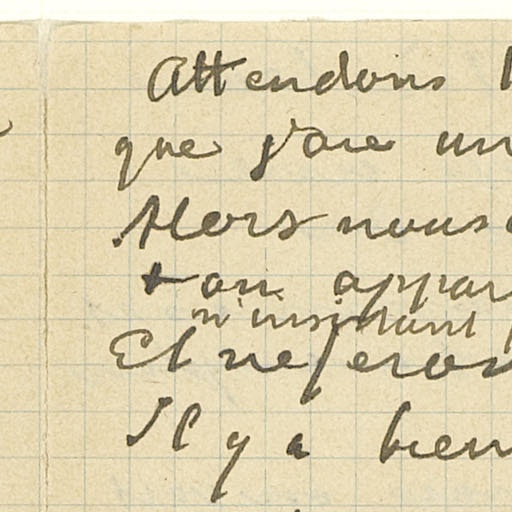 Attendons
que j'ose un
Alors nous
ton appar
n'insistant
Et ne
Il y a bien